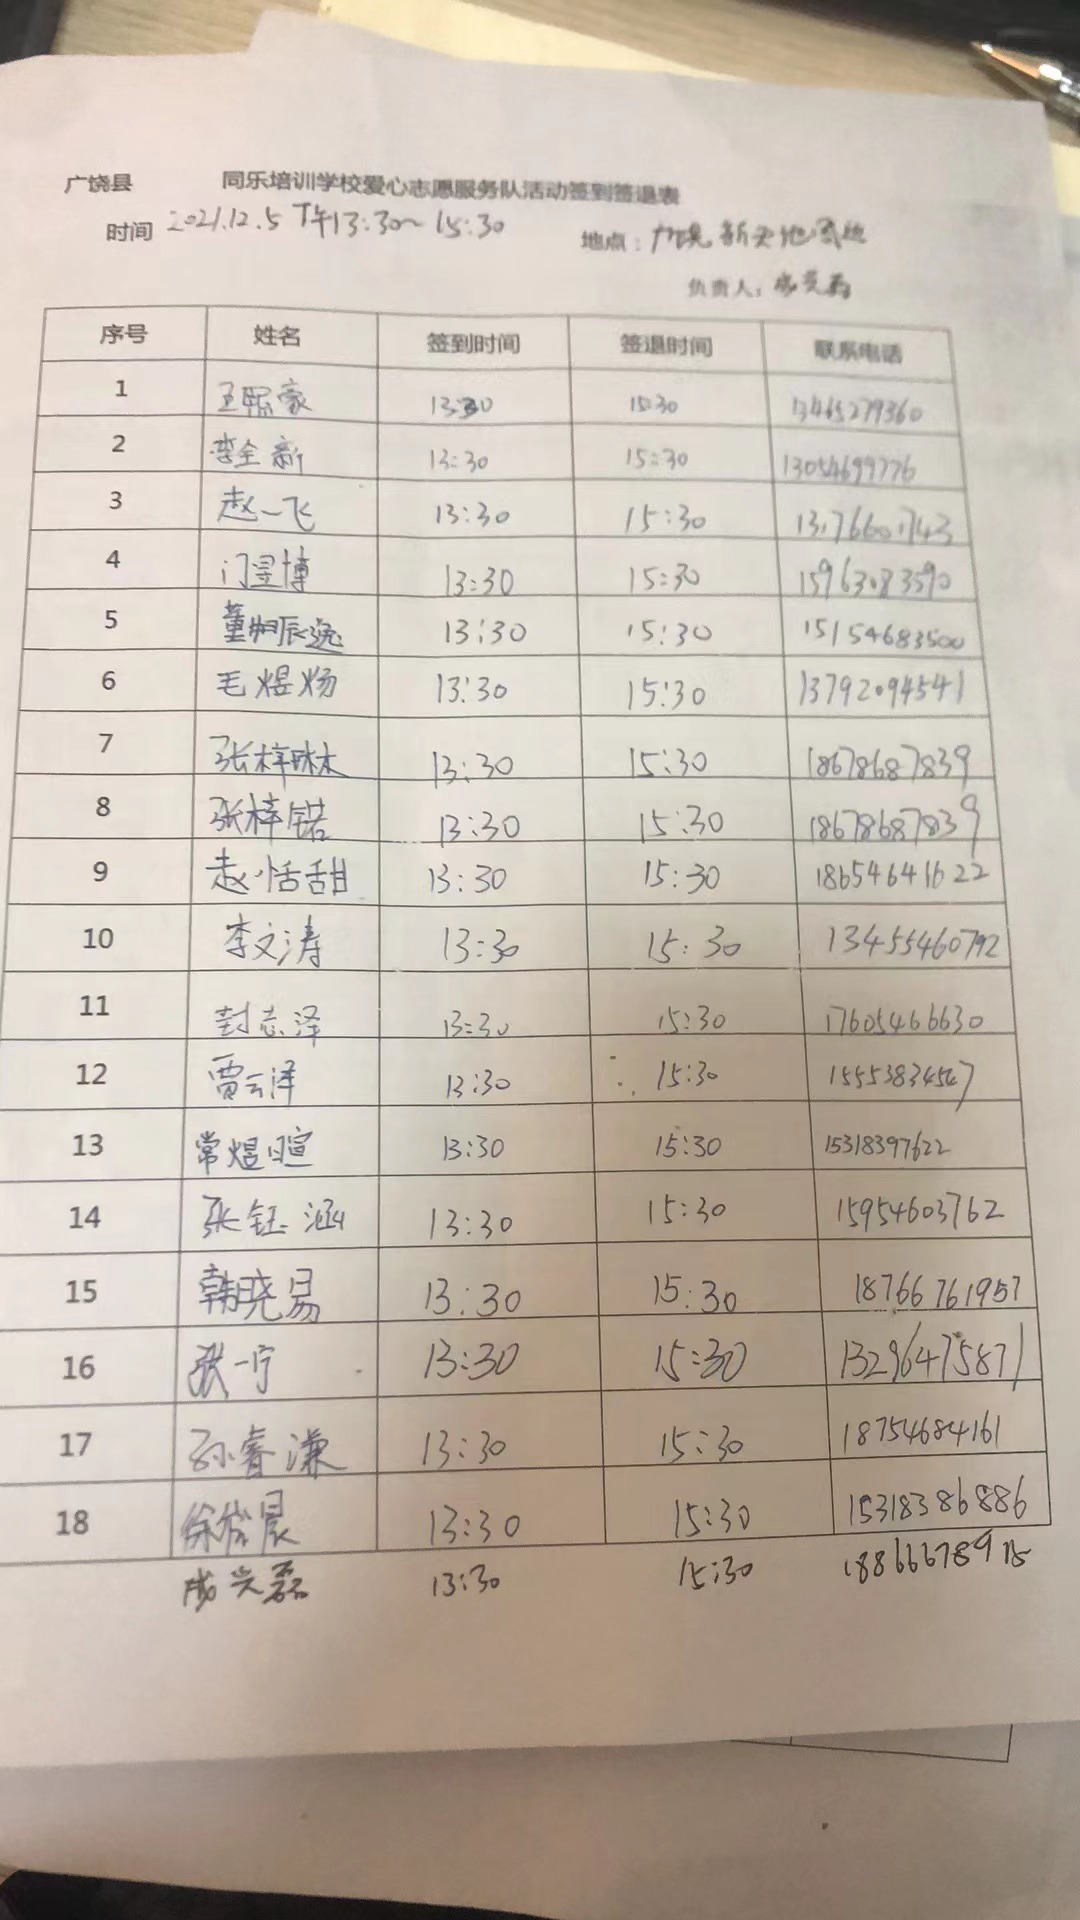 广饶县 同乐培训学校爱心志愿服务队活动签到签退表
时间 2021.12.5 下午13:30～15:30 地点：广饶新天地周边
负责人：成兴磊
序号 姓名 签到时间 签退时间 联系电话
1 王熙豪 13:30 15:30 13465279360
2 李全新 13:30 15:30 13054699776
3 赵一飞 13:30 15:30
4 门昱博 13:30 15:30 15963083590
5 董栩辰逸 13:30 15:30 15154683500
6 毛煜炀 13:30 15:30 13792094541
7 张梓琳 13:30 15:30 18678687839
8 张梓锘 13:30 15:30 18678687839
9 赵恬甜 13:30 15:30 18654641622
10 李文涛 13:30 15:30 13455460792
11 封志泽 13:30 15:30 17605466630
12 贾云泽 13:30 15:30 15553834547
13 常煜暄 13:30 15:30 15318397622
14 张钰涵 13:30 15:30 15954603762
15 韩晓易 13:30 15:30 18766761957
16 张一宁 13:30 15:30 13296475871
17 孙睿谦 13:30 15:30 18754684161
18 徐 晨 13:30 15:30 15318386886
成兴磊 13:30 15:30 18866678915